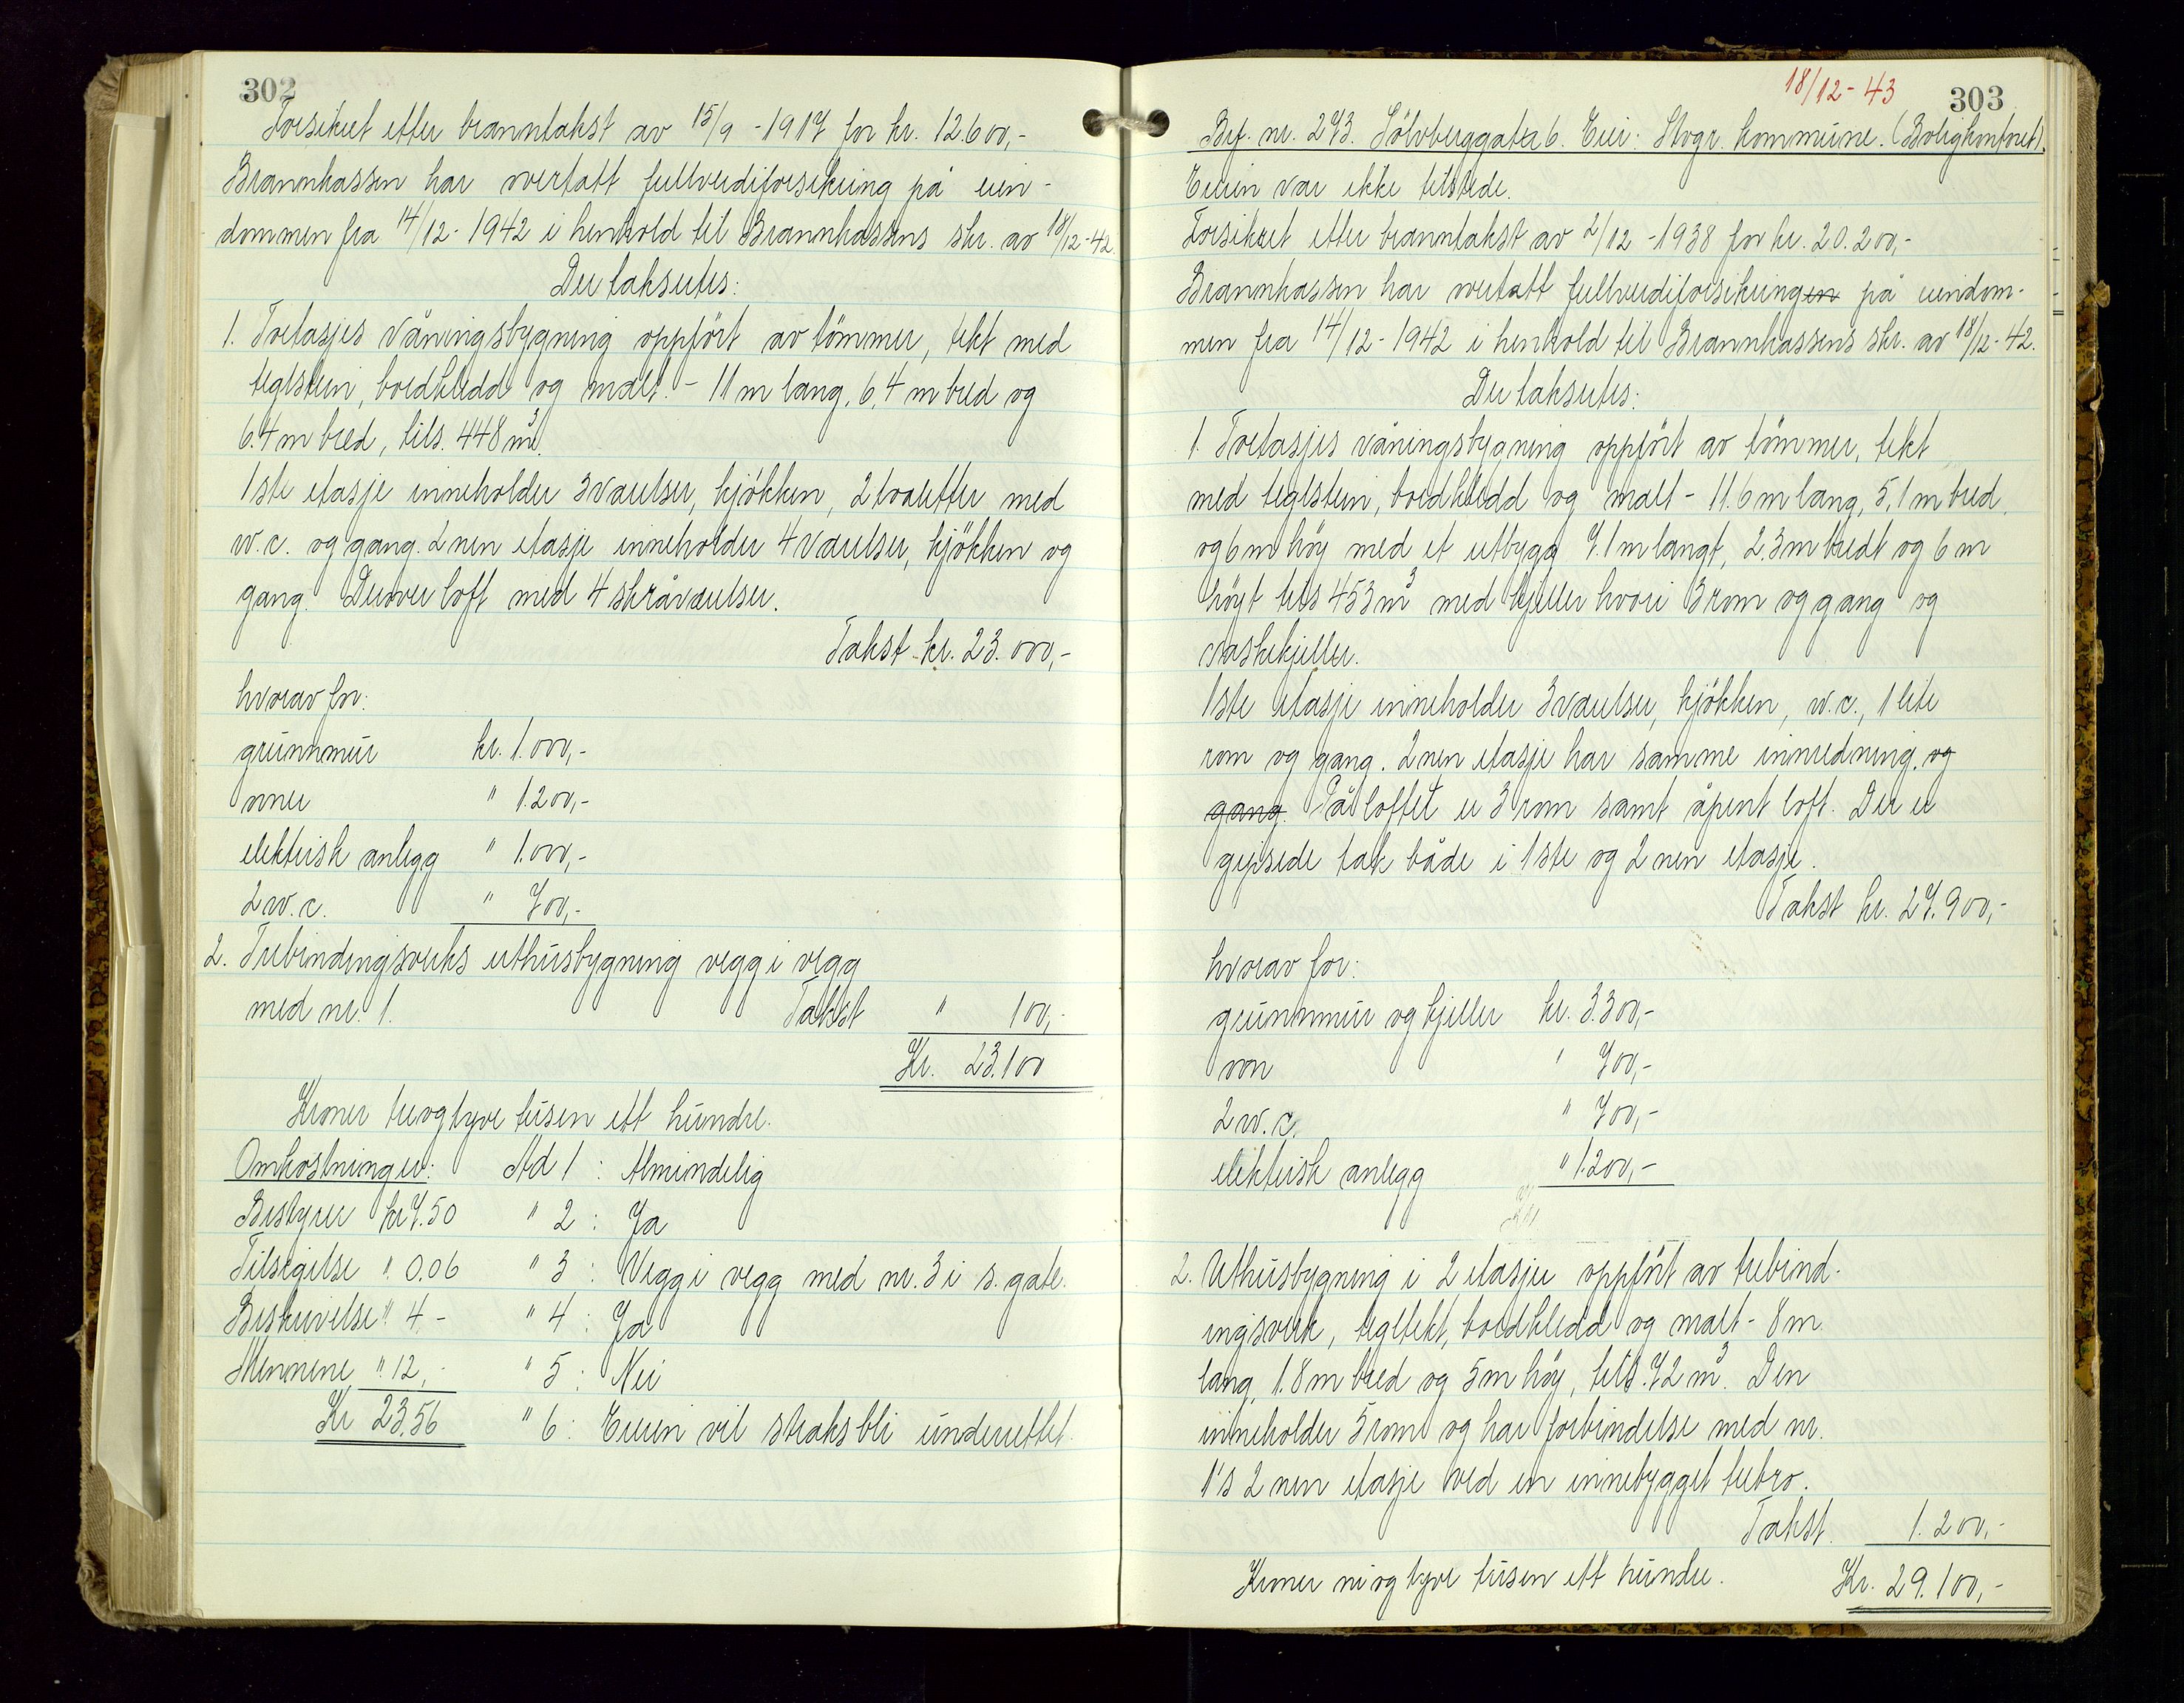 302
Forsikret etter branntakst av 15/9 - 1917 for kr. 12.600,-
Brannkassen har overtatt fullverdiforsikring på eien-
dommen fra 14/12 - 1942 i henhold til Brannkassens skr. av 18/12-42.
Der takseres:
1. Toetasjes våningsbygning oppført av tømmer, tekt med
teglstein, bordkledd og malt. - 11 m lang, 6,4 m bred og
6.4 m bred, tils. 448 m³.
1ste etasje inneholder 3 værelser, kjøkken, 2 toaletter med
w.c. og gang. 2nen etasje inneholder 4 værelser, kjøkken og
gang. Derover loft med 4 skråværelser.
Takst kr. 23.000,-
hvorav for:
grunnmur kr. 1.000,-
ovner " 1.200,-
elektrisk anlegg " 1.000,-
2 w.c. " 700,-
2. Trebindingsverks uthusbygning vegg i vegg
med nr. 1. Takst " 100,-
Kr. 23.100
Kroner treogtyve tusen ett hundre.
Omkostninger: Ad 1 : Almindelig
Bestyrer kr 7.50 " 2 : Ja
Tilsigelse " 0.06 " 3 : Vegg i vegg med nr. 3 i s. gate.
Beskrivelse " 4,- " 4 : Ja
Mennene " 12,- " 5 : Nei
Kr 23,56 " 6 : Eieren vil straks bli underrettet.
18/12-43
303
Brf. nr. 273. Sölvberggata 6. Eier: Stvgr. kommune. (Boligkontoret).
Eieren var ikke tilstede.
Forsikret etter branntakst av 2/12 - 1938 for kr. 20.200,-
Brannkassen har overtatt fullverdiforsikringen på eiendom-
men fra 14/12 - 1942 i henhold til Brannkassens skr. av 18/12-42.
Der takseres:
1. Toetasjes våningsbygning oppført av tømmer, tekt
med teglstein, bordkledd og malt - 11.6 m lang, 5,1 m bred,
og 6 m høy med et utbygg 7.1 m langt, 2,3 m bredt og 6 m
høyt tils 453 m³ med kjeller hvori 3 rom og gang og
vaskekjeller.
1ste etasje inneholder 3 værelser, kjøkken, w.c., 1 lite
rom og gang. 2nen etasje har samme innredning. og
gang. På loftet er 3 rom samt åpent loft. Der er
gipsede tak både i 1ste og 2nen etasje.
Takst kr. 27.900,-
hvorav for:
grunnmur og kjeller kr. 3.300,-
ovn " 700,-
2 w.c. " 700,-
elektrisk anlegg " 1.200,-
2. Uthusbygning i 2 etasjer oppført av trebind-
ingsverk, tegltekt, bordkledd og malt - 8 m
lang, 1.8 m bred og 5 m høy, tils. 72 m³. Den
inneholder 5 rom og har forbindelse med nr.
1's 2nen etasje ved en innebygget trebro.
Takst. 1.200,-
Kroner niogtyve tusen ett hundre. Kr. 29.100,-